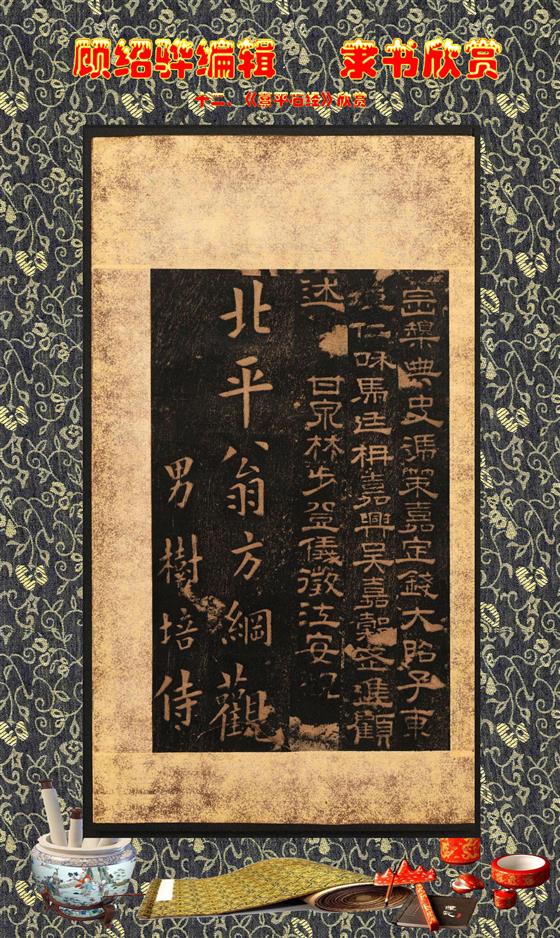 顾绍骅编辑 隶书欣赏
十二、《熹平石经》欣赏
典史馮策嘉定錢大昭子東
仁和馬廷枏嘉興吳嘉穀武進顧
述 甘泉林步登儀徵江安
北平翁方綱觀
男樹培侍